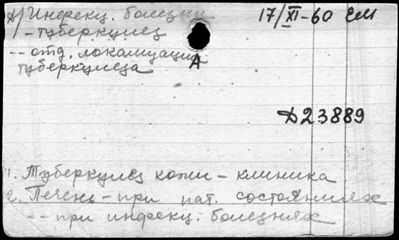 А/ Инфекц. болезни 17/XI-60 ЕМ
- туберкулез
-- отд. локализации
туберкулеза
А
Д23889
1. Туберкулез кожи - клиника
2. Печень - при пат. состояниях
-- при инфекц. болезнях